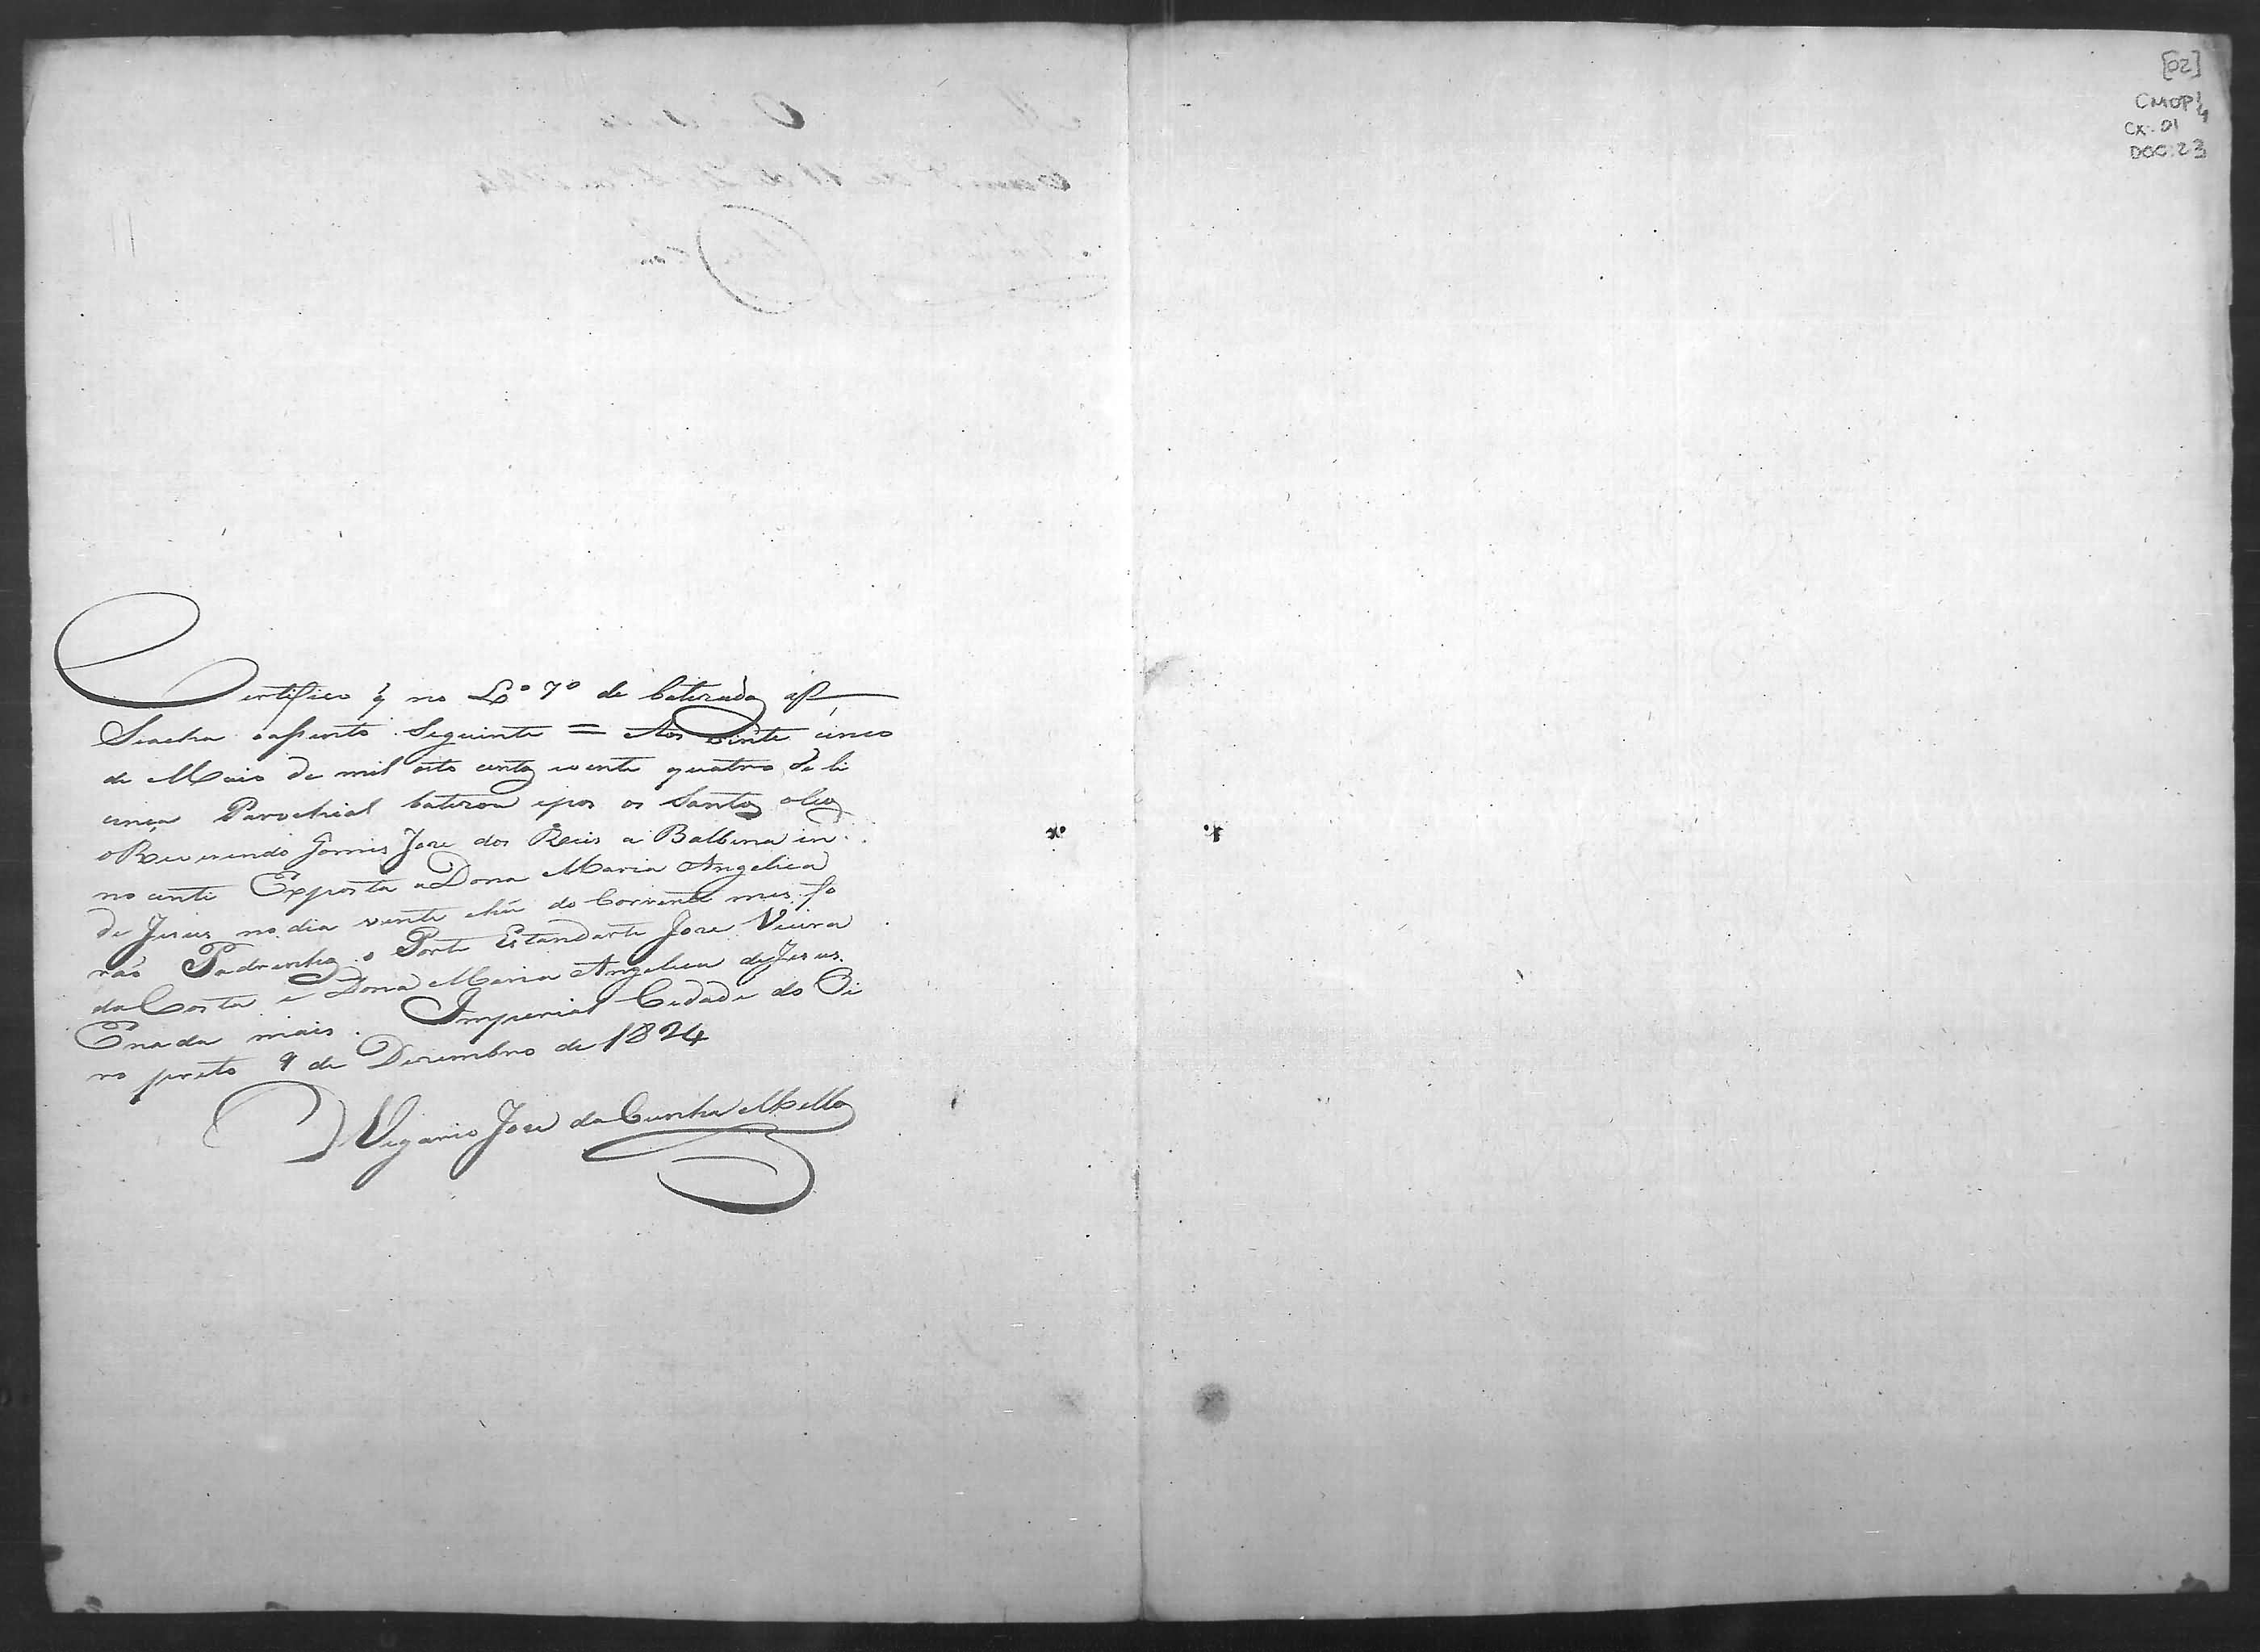 [02]
CMOP 1/4
CX: 01
DOC: 23
Certifico q̃ no L.º 7º de batizados af
Seacha oaſsento Seguinte = Aos vinte cinco
de Maio de mil oito centos evente quatro de li
cença Parochial batizou epos os Santos oleos
oReverendo Gomes Joze dos Reis a Balbina in
nocente Exposta a Dona Maria Angelica
de Jesus no dia vente ehũ do Corrente mes fo
raõ Padrinhos o Porta Estandarte Joze Vieira
da Costa e Dona Maria Angelica deJesus.
Enada mais. Imperial Cedade do Oi
ro preto 9 de Dezembro de 1824
O Vigario Joze da Cunha Mello